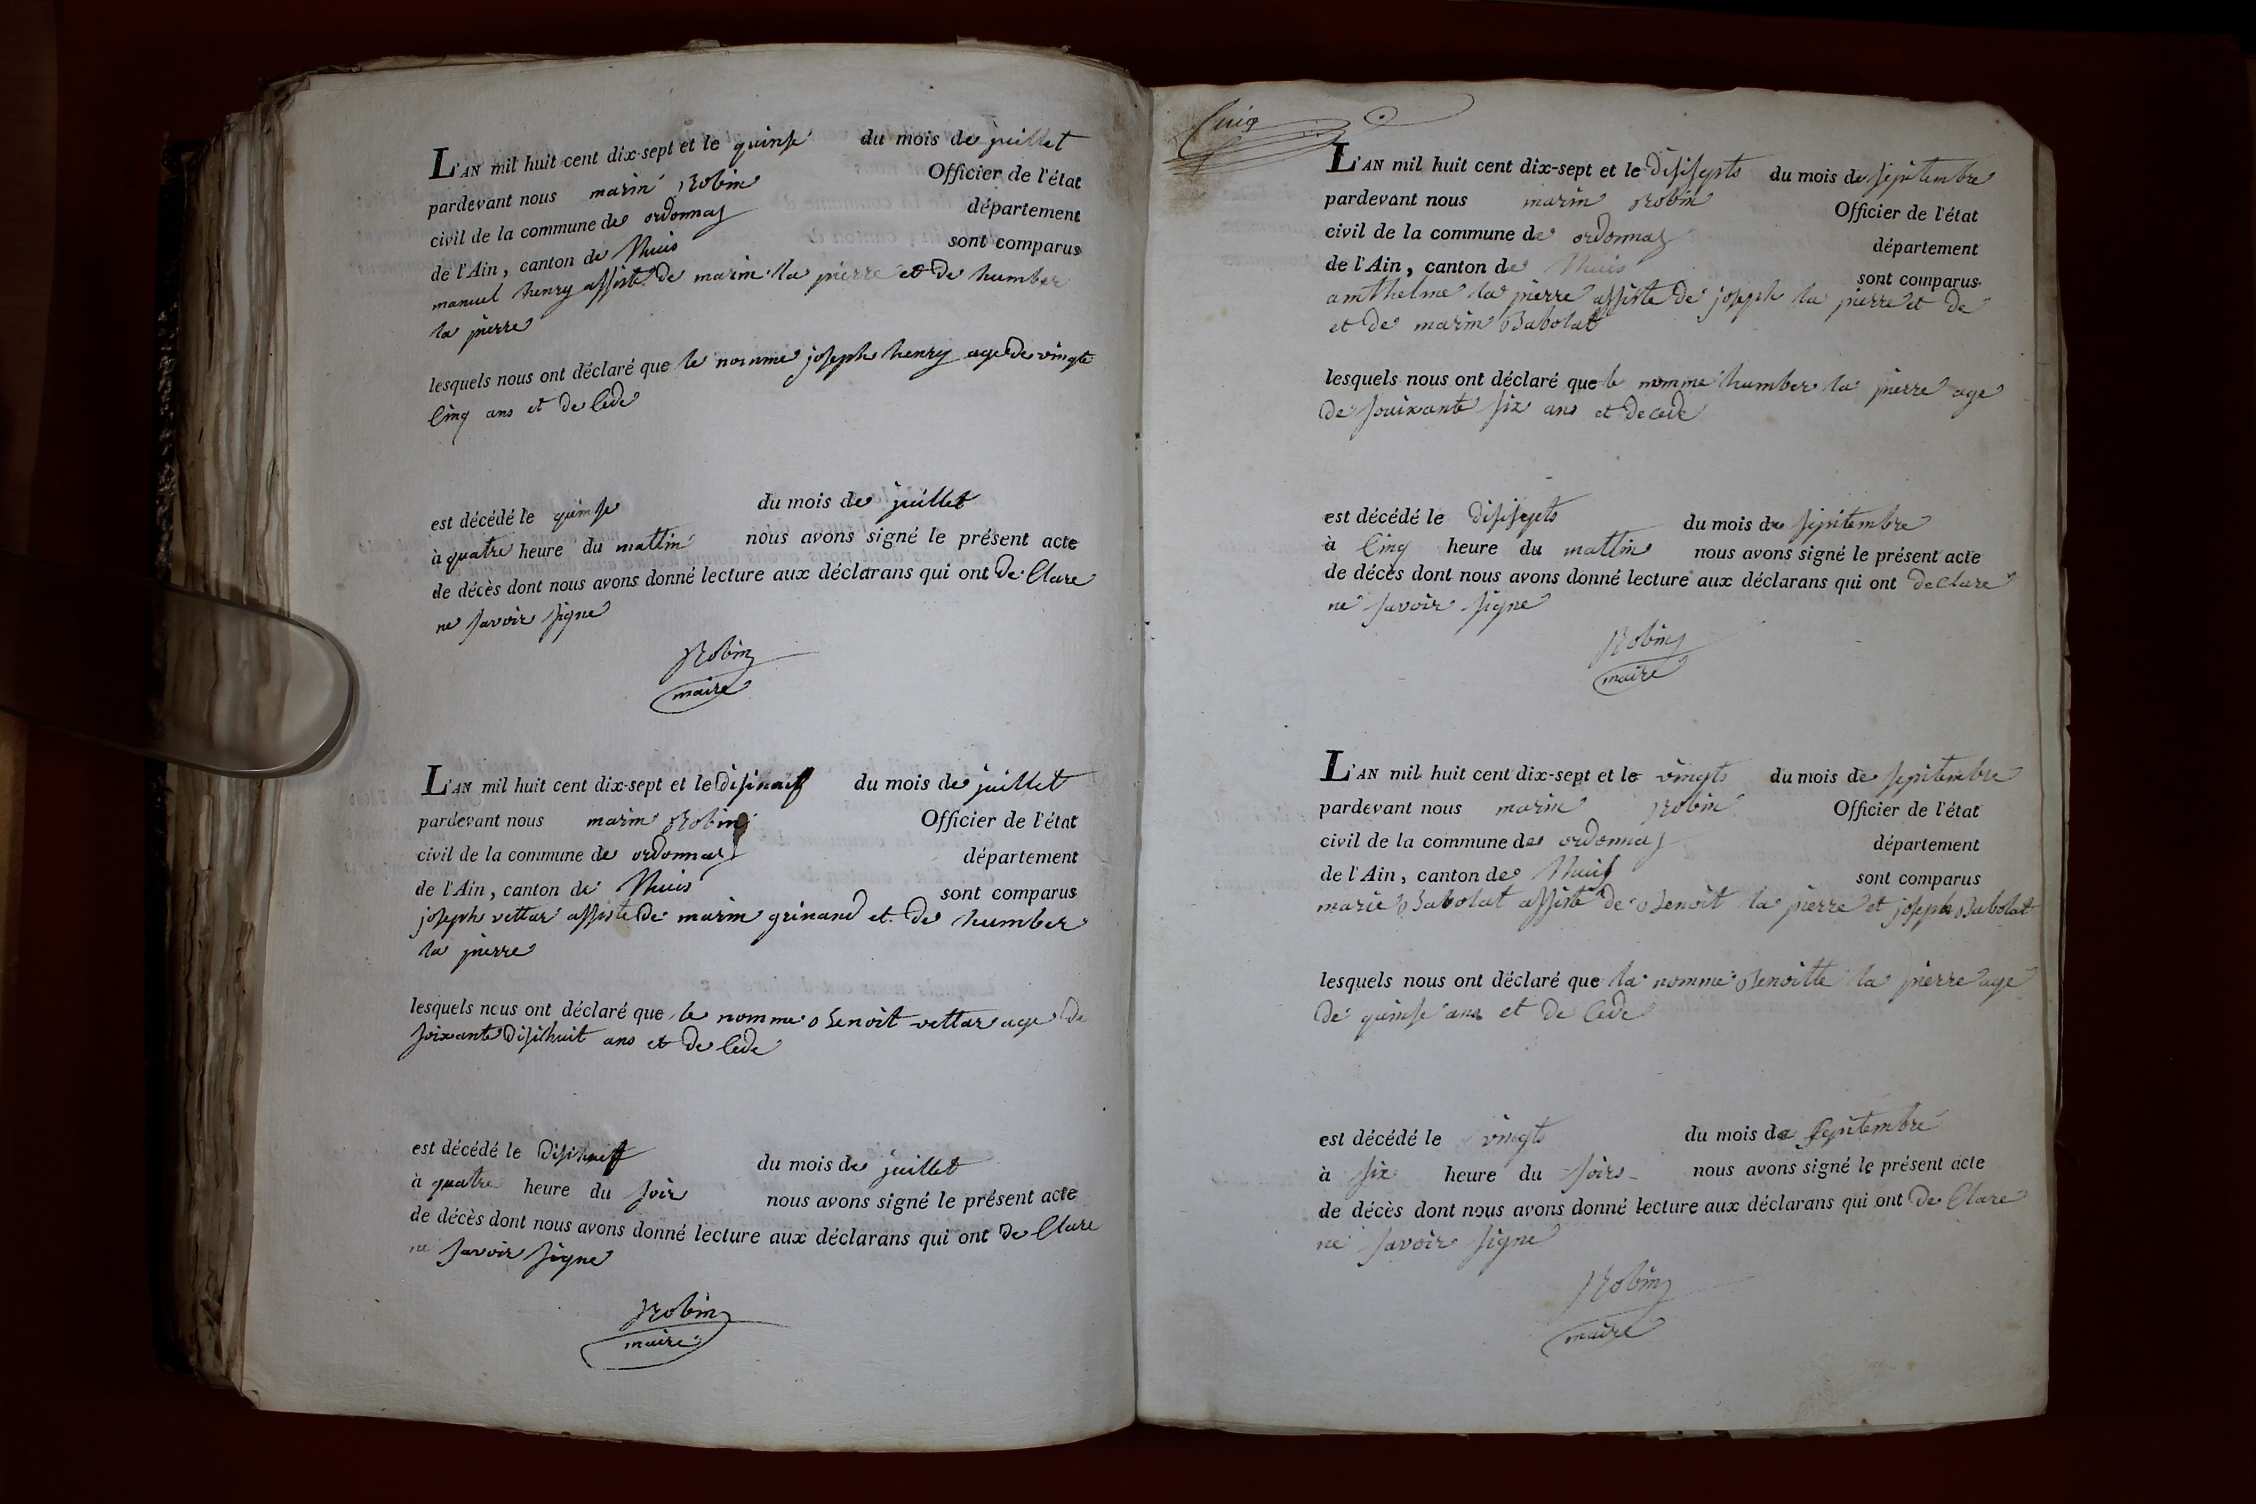 L'AN mil huit cent dix-sept et le quinse du mois de juillet
pardevant nous marin Robin Officier de l'état
civil de la commune de ordonnas département
de l'Ain, canton de lhuis sont comparus
manuel henry assisté de marin la pierre et de humber
la pierre
lesquels nous ont déclaré que le nomme joseph henry age de vingts
Cinq ans et de Cede
est décédé le quinse du mois de juillet
à quatre heure du mattin nous avons signé le présent acte
de décès dont nous avons donné lecture aux déclarans qui ont de Clare
ne savoir signe
Robin
maire
L'AN mil huit cent dix-sept et le disineuf du mois de juillet
pardevant nous marin Robin Officier de l'état
civil de la commune de ordonnas département
de l'Ain, canton de lhuis sont comparus
joseph vettar assiste de marin grinand et de humber
la pierre
lesquels nous ont déclaré que le nomme Benoit vettar age de
soixante disihuit ans et de Cede
est décédé le disineuf du mois de juillet
à quatre heure du soir nous avons signé le présent acte
de décès dont nous avons donné lecture aux déclarans qui ont de Clare
ne savoir signe
Robin
maire
Cinq
L'AN mil huit cent dix-sept et le disisepts du mois de septembre
pardevant nous marin Robin Officier de l'état
civil de la commune de ordonnas département
de l'Ain, canton de lhuis sont comparus
amthelme la pierre assiste de joseph la pierre et de
et de marin Babolat
lesquels nous ont déclaré que le nomme humber la pierre age
de souixante six ans et decede
est décédé le disisepts du mois de septembre
à Cinq heure du mattin nous avons signé le présent acte
de décès dont nous avons donné lecture aux déclarans qui ont declare
ne savoir signe
Robin
maire
L'AN mil huit cent dix-sept et le vingts du mois de septembre
pardevant nous marin Robin Officier de l'état
civil de la commune de ordonnas département
de l'Ain, canton de lhuis sont comparus
marie Babolat assisté de Benoit la pierre et joseph Babolat
lesquels nous ont déclaré que la nomme Benoitte la pierre age
de quinse ans et de Cede
est décédé le vingts du mois de septembre
à six heure du soir nous avons signé le présent acte
de décès dont nous avons donné lecture aux déclarans qui ont de Clare
ne savoir signe
Robin
maire